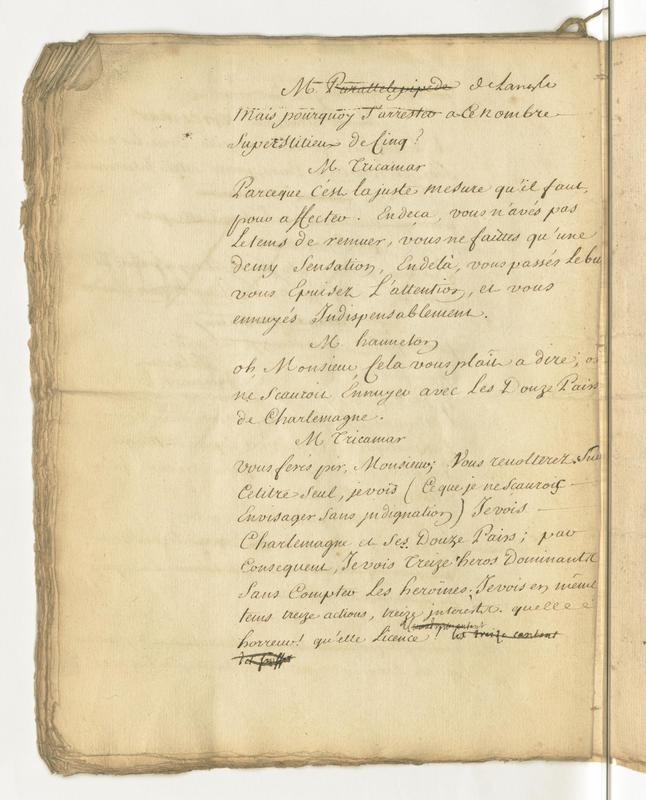 M. Parallelepipede de Langle
Mais pourquoy s'arrester a ce nombre
Superstitieux de Cinq?
M. Tricamar
Parceque c'est la juste mesure qu'il faut,
pour affecter. En deca, vous n'avés pas
Le tems de remuer, vous ne faittes qu'une
demy Sensation, En delà, vous passés Le but
vous Epuisez L'attention, et vous
ennuyés Indispensablement.
M. hanneton
oh, Monsieur Cela vous plait a dire; on
ne Scauroit Ennuyer avec Les Douze Pairs
de Charlemagne.
M. Tricamar
vous ferés pir, Monsieur; Vous revolterez. Sur
Ce titre Seul, je vois (Ce que je ne Scaurois
Envisager Sans jndignation) Je vois
Charlemagne et Ses Douze Pairs; par
Consequent, Je vois Treize heros Dominants
Sans Compter Les heroïnes; Je vois en même
tems treize actions, treize interests. quelle
horreur! qu'elle Licence! les treize cantons